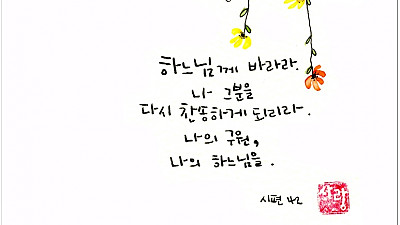 하느님께 바라라.
나 그분을
다시 찬송하게 되리라.
나의 구원,
나의 하느님을.
시편 42
사랑